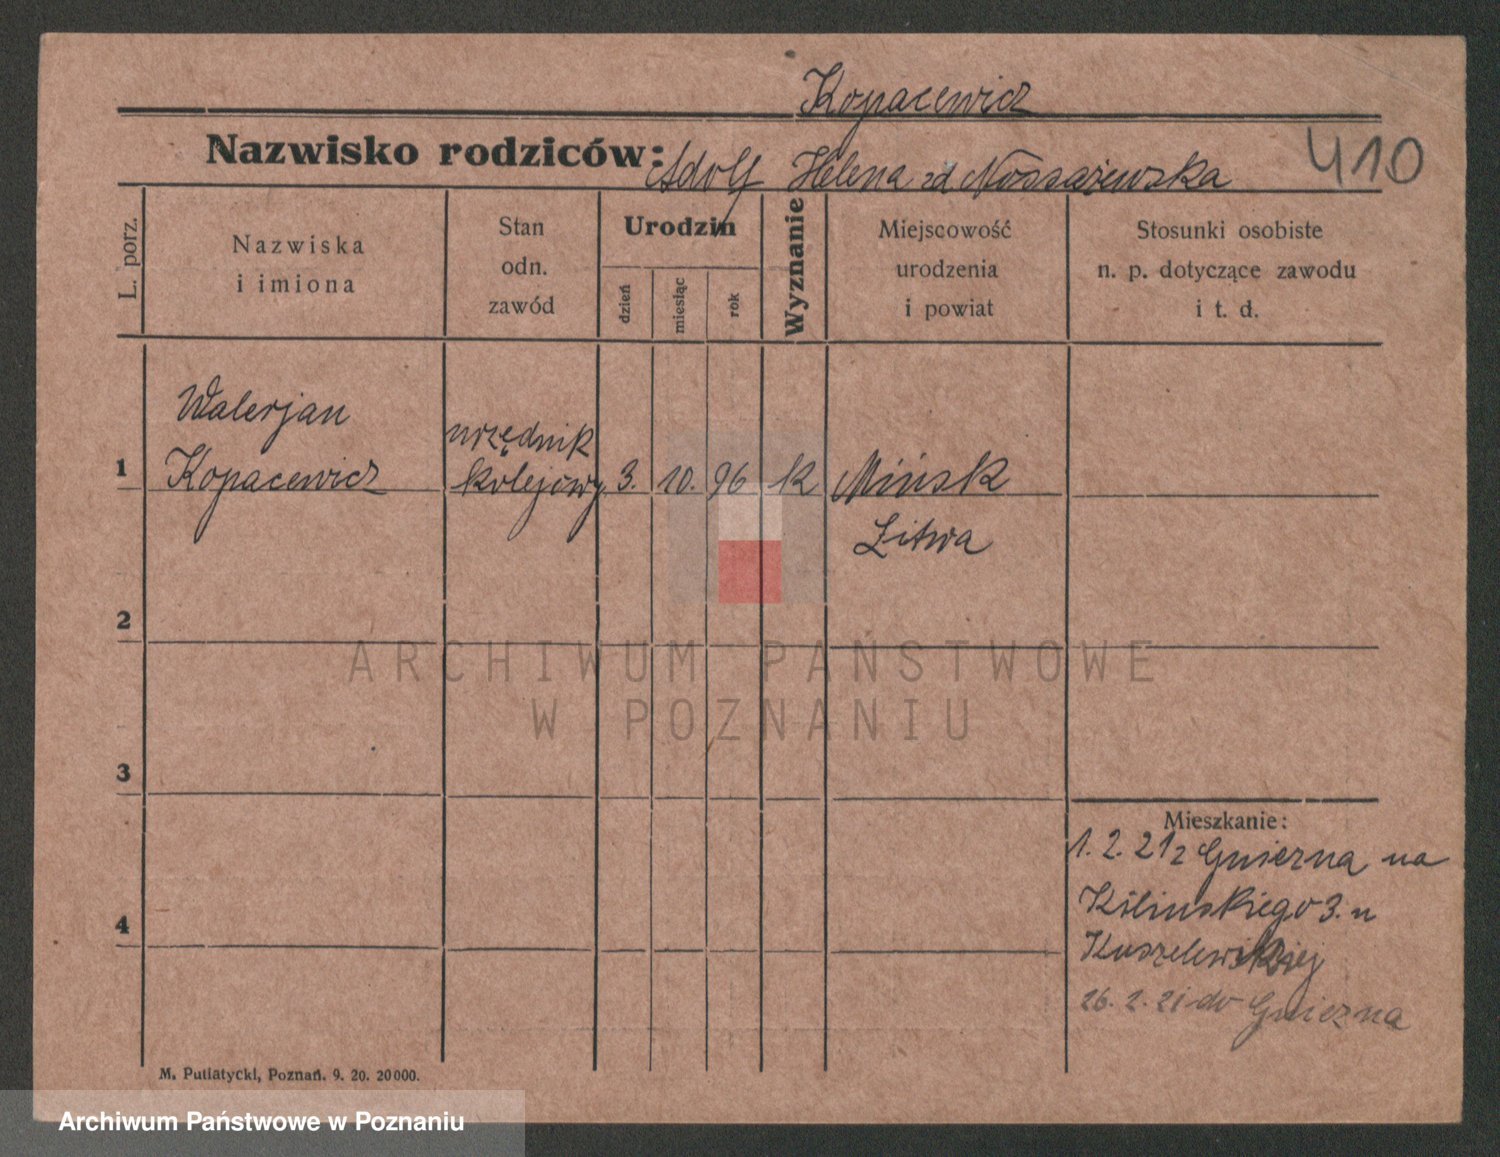 Kopacewicz
Nazwisko rodziców: Adolf Helena zd Nossażewska
410
L. porz.
Nazwiska
i imiona
Stan
odn.
zawód
Urodzin
dzień
miesiąc
rok
Wyznanie
Miejscowość
urodzenia
i powiat
Stosunki osobiste
n. p. dotyczące zawodu
i t. d.
1
Walerjan
Kopacewicz
urzędnik
kolejowy
3. 10. 96 k
Mińsk
Litwa
2
ARCHIWUM PAŃSTWOWE
W POZNANIU
3
Mieszkanie:
1. 2. 21 z Gniezna na
Kilinskiego 3. u
4
26. 2. 21 do Gniezna
M. Putiatycki, Poznań. 9. 20. 20000.
Archiwum Państwowe w Poznaniu